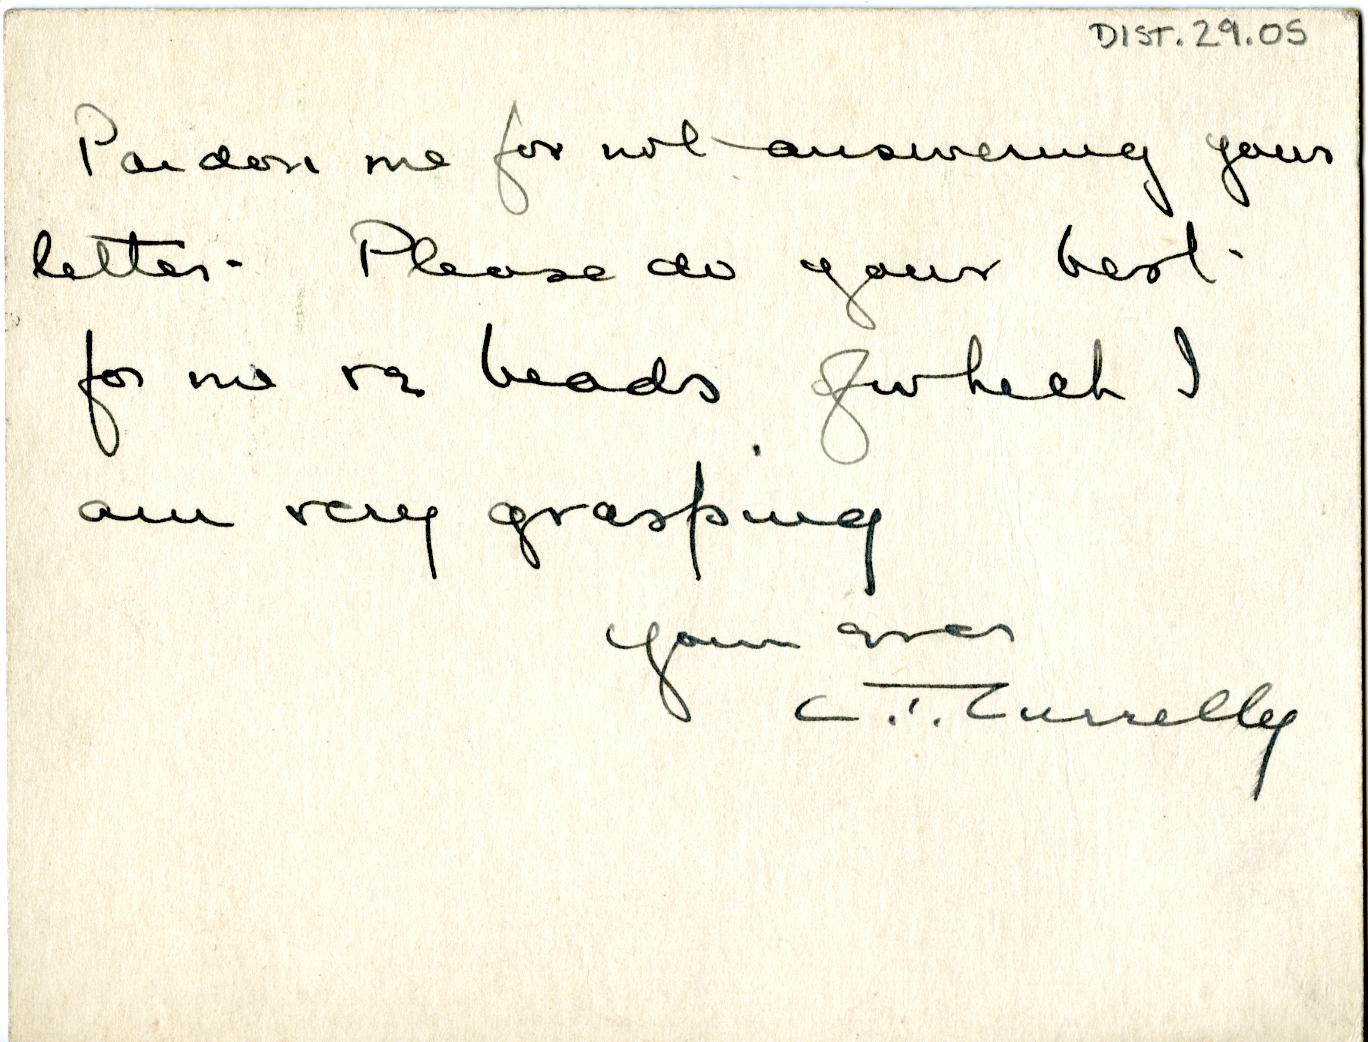 DIST. 29.05
Pardon me for not answering your
letter. Please do your best
for me re beads of which I
am very grasping
Your ever
C. T. Currelly